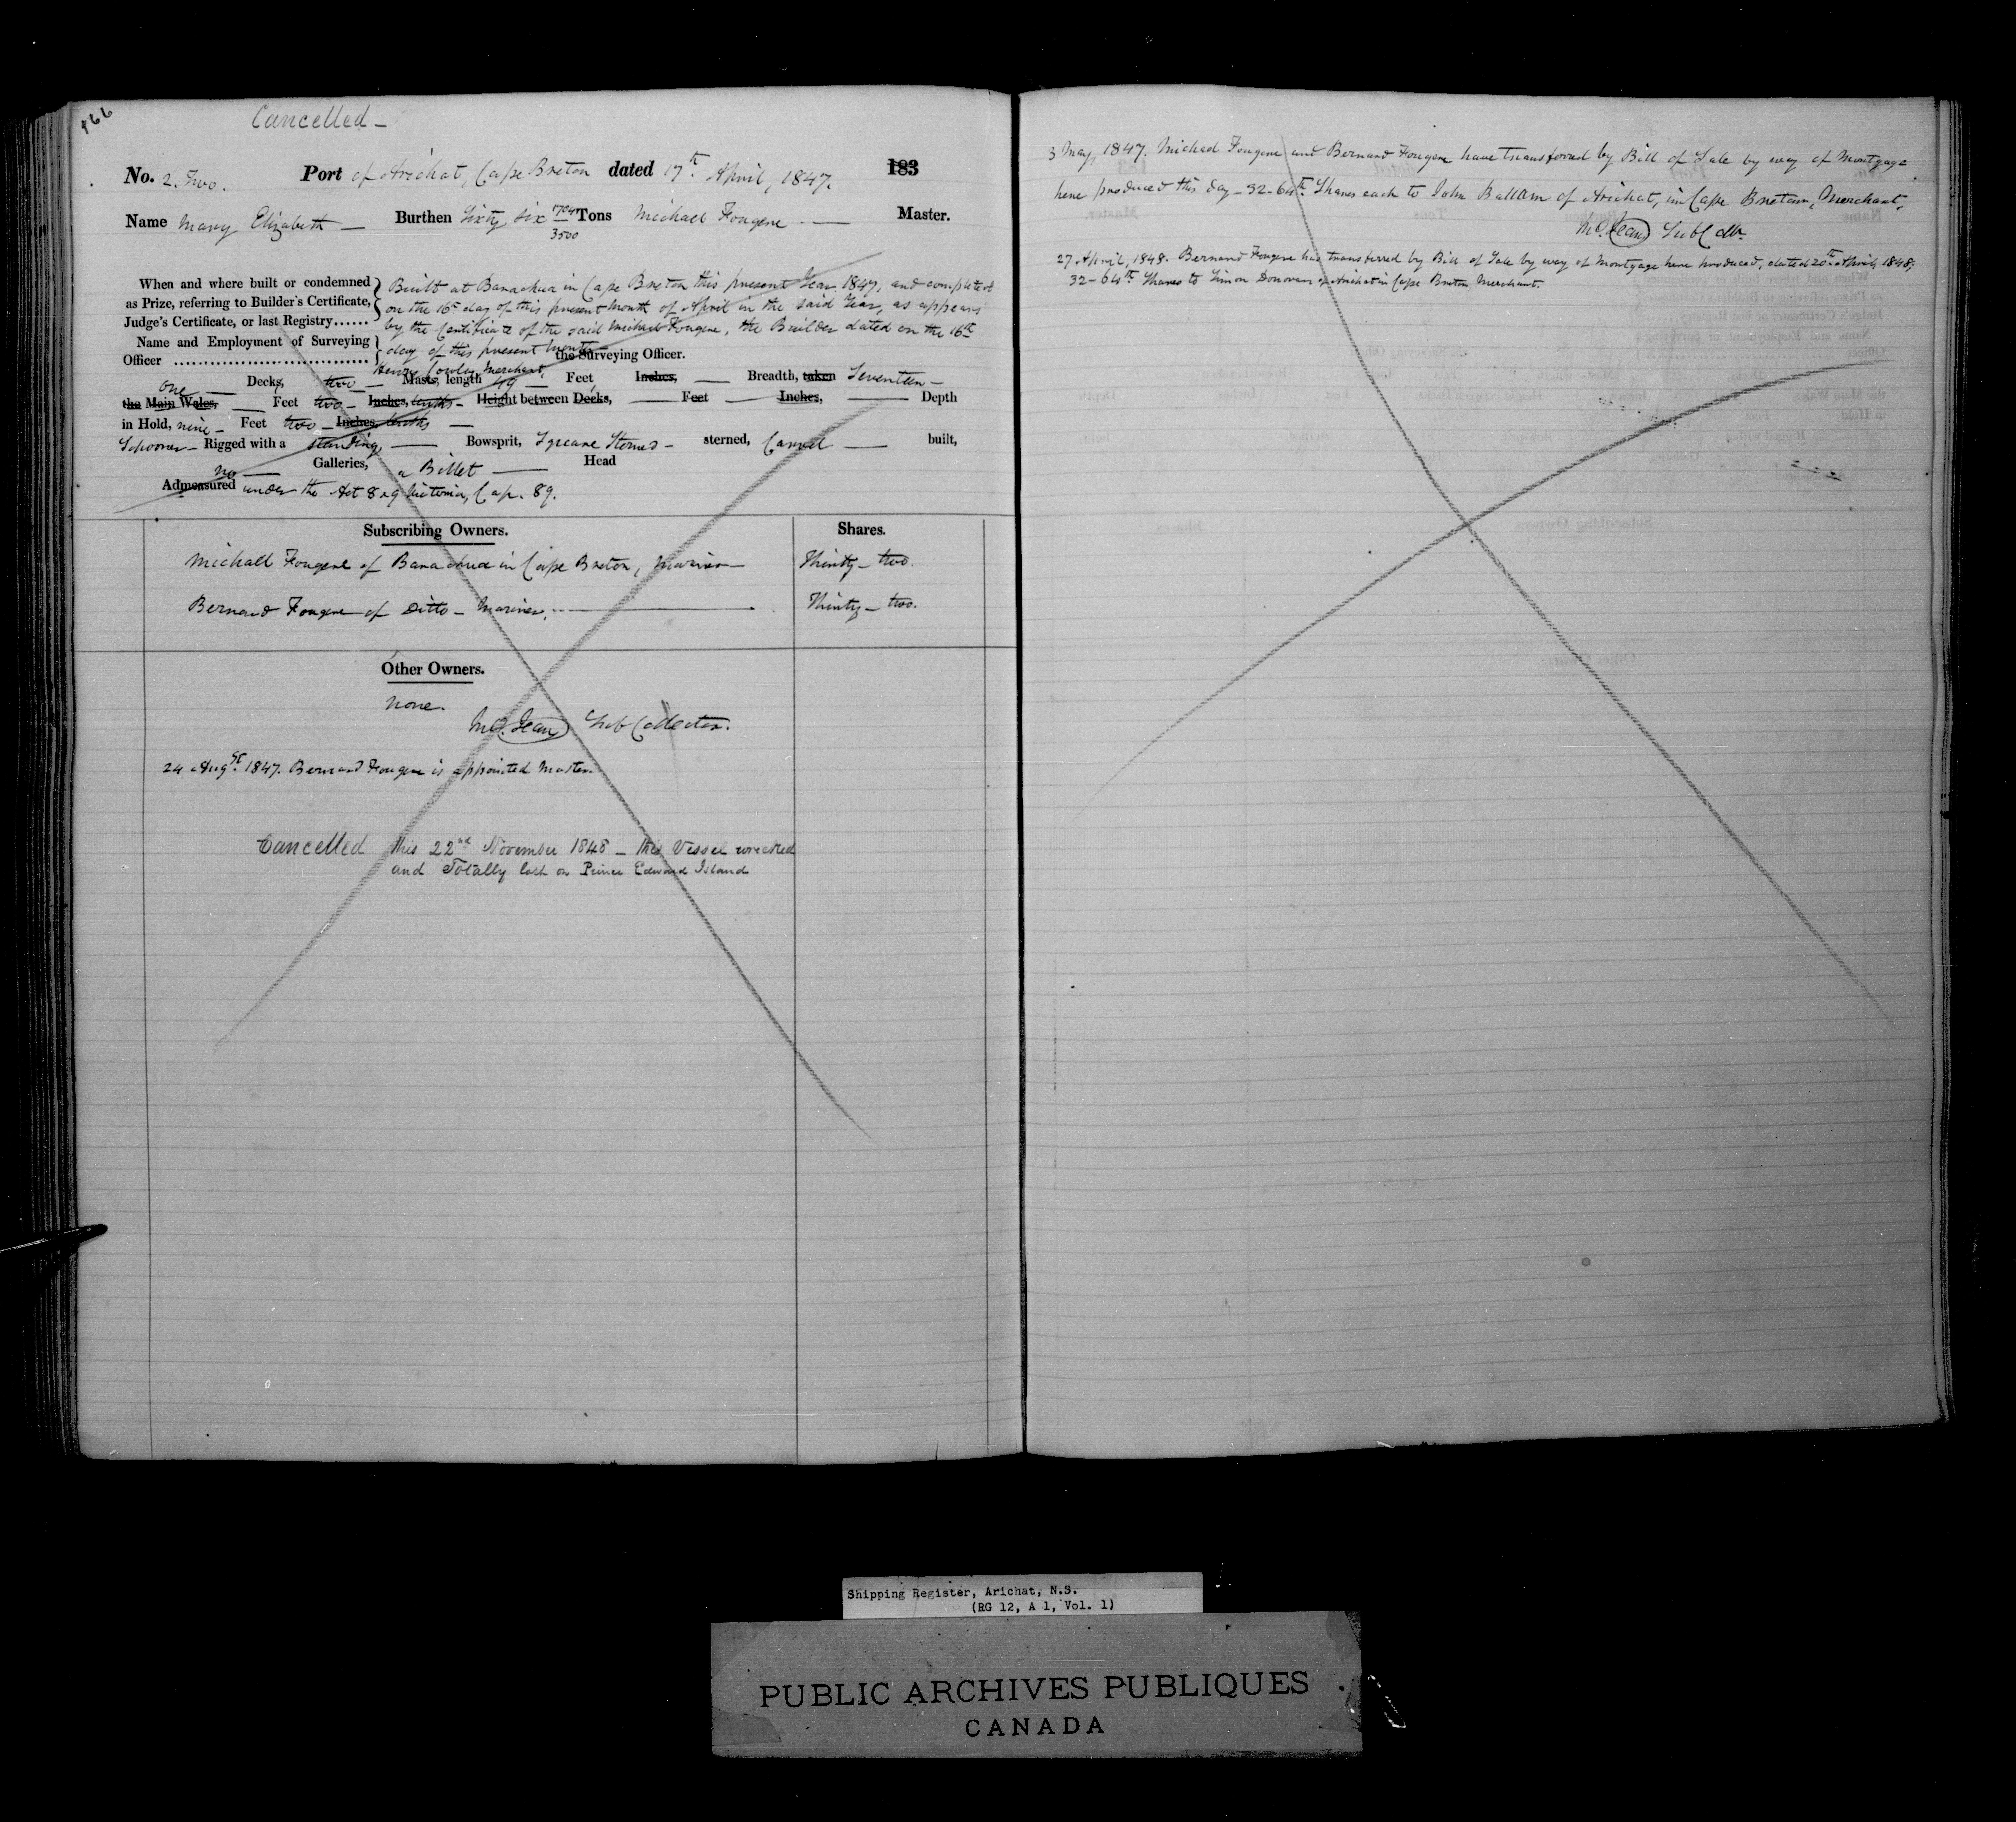 166
Cancelled -
No. 2. Two. Port of Arichat, Cape Breton dated 17th April, 1847. 183
Name Mary Elizabeth — Burthen Sixty six 1724/3500 Tons Michael Fougere — Master.
When and where built or condemned
as Prize, referring to Builder's Certificate,
Judge's Certificate, or last Registry......
Built at Barachua in Cape Breton this present Year 1847, and completed
on the 16th day of this present month of April in the said Year, as appears
by the Certificate of the said Michael Fougere, the Builder dated on the 16th
day of this present month
Name and Employment of Surveying
Officer
Henry Cowley Merchant, the Surveying Officer.
one — Decks, two — Masts, length 49 — Feet, Inches, — Breadth, taken Seventeen —
the Main Wales, — Feet two — Inches, tenths — Height between Decks, — Feet — Inches, — Depth
in Hold, nine — Feet two — Inches tenths —
Schooner — Rigged with a standing — Bowsprit, Square Sterned — sterned, Carvel — built,
no — Galleries, a Billet — Head
Admeasured under the Act 8 & 9 Victoria, Cap. 89.
Subscribing Owners. Shares.
Michael Fougere of Barachua in Cape Breton, Mariner — Thirty - two.
Bernard Fougere of Ditto - Mariner. — Thirty - two.
Other Owners.
None.
Jean Sub Collector.
24 Augst. 1847. Bernard Fougere is appointed Master.
Cancelled this 22nd November 1848 - this Vessel wrecked
and Totally lost on Prince Edward Island
3 May, 1847. Michael Fougere and Bernard Fougere have transferred by Bill of Sale by way of Mortgage
here produced this day - 32-64th Shares each to John Ballam of Arichat, in Cape Breton, Merchant,
Jean Sub Collr.
27 April, 1848. Bernard Fougere has transferred by Bill of Sale by way of Mortgage here produced, dated 20th April, 1848,
32-64th Shares to Simon Donovan of Arichat in Cape Breton, Merchant.
Shipping Register, Arichat, N.S.
(RG 12, A 1, Vol. 1)
PUBLIC ARCHIVES PUBLIQUES
CANADA